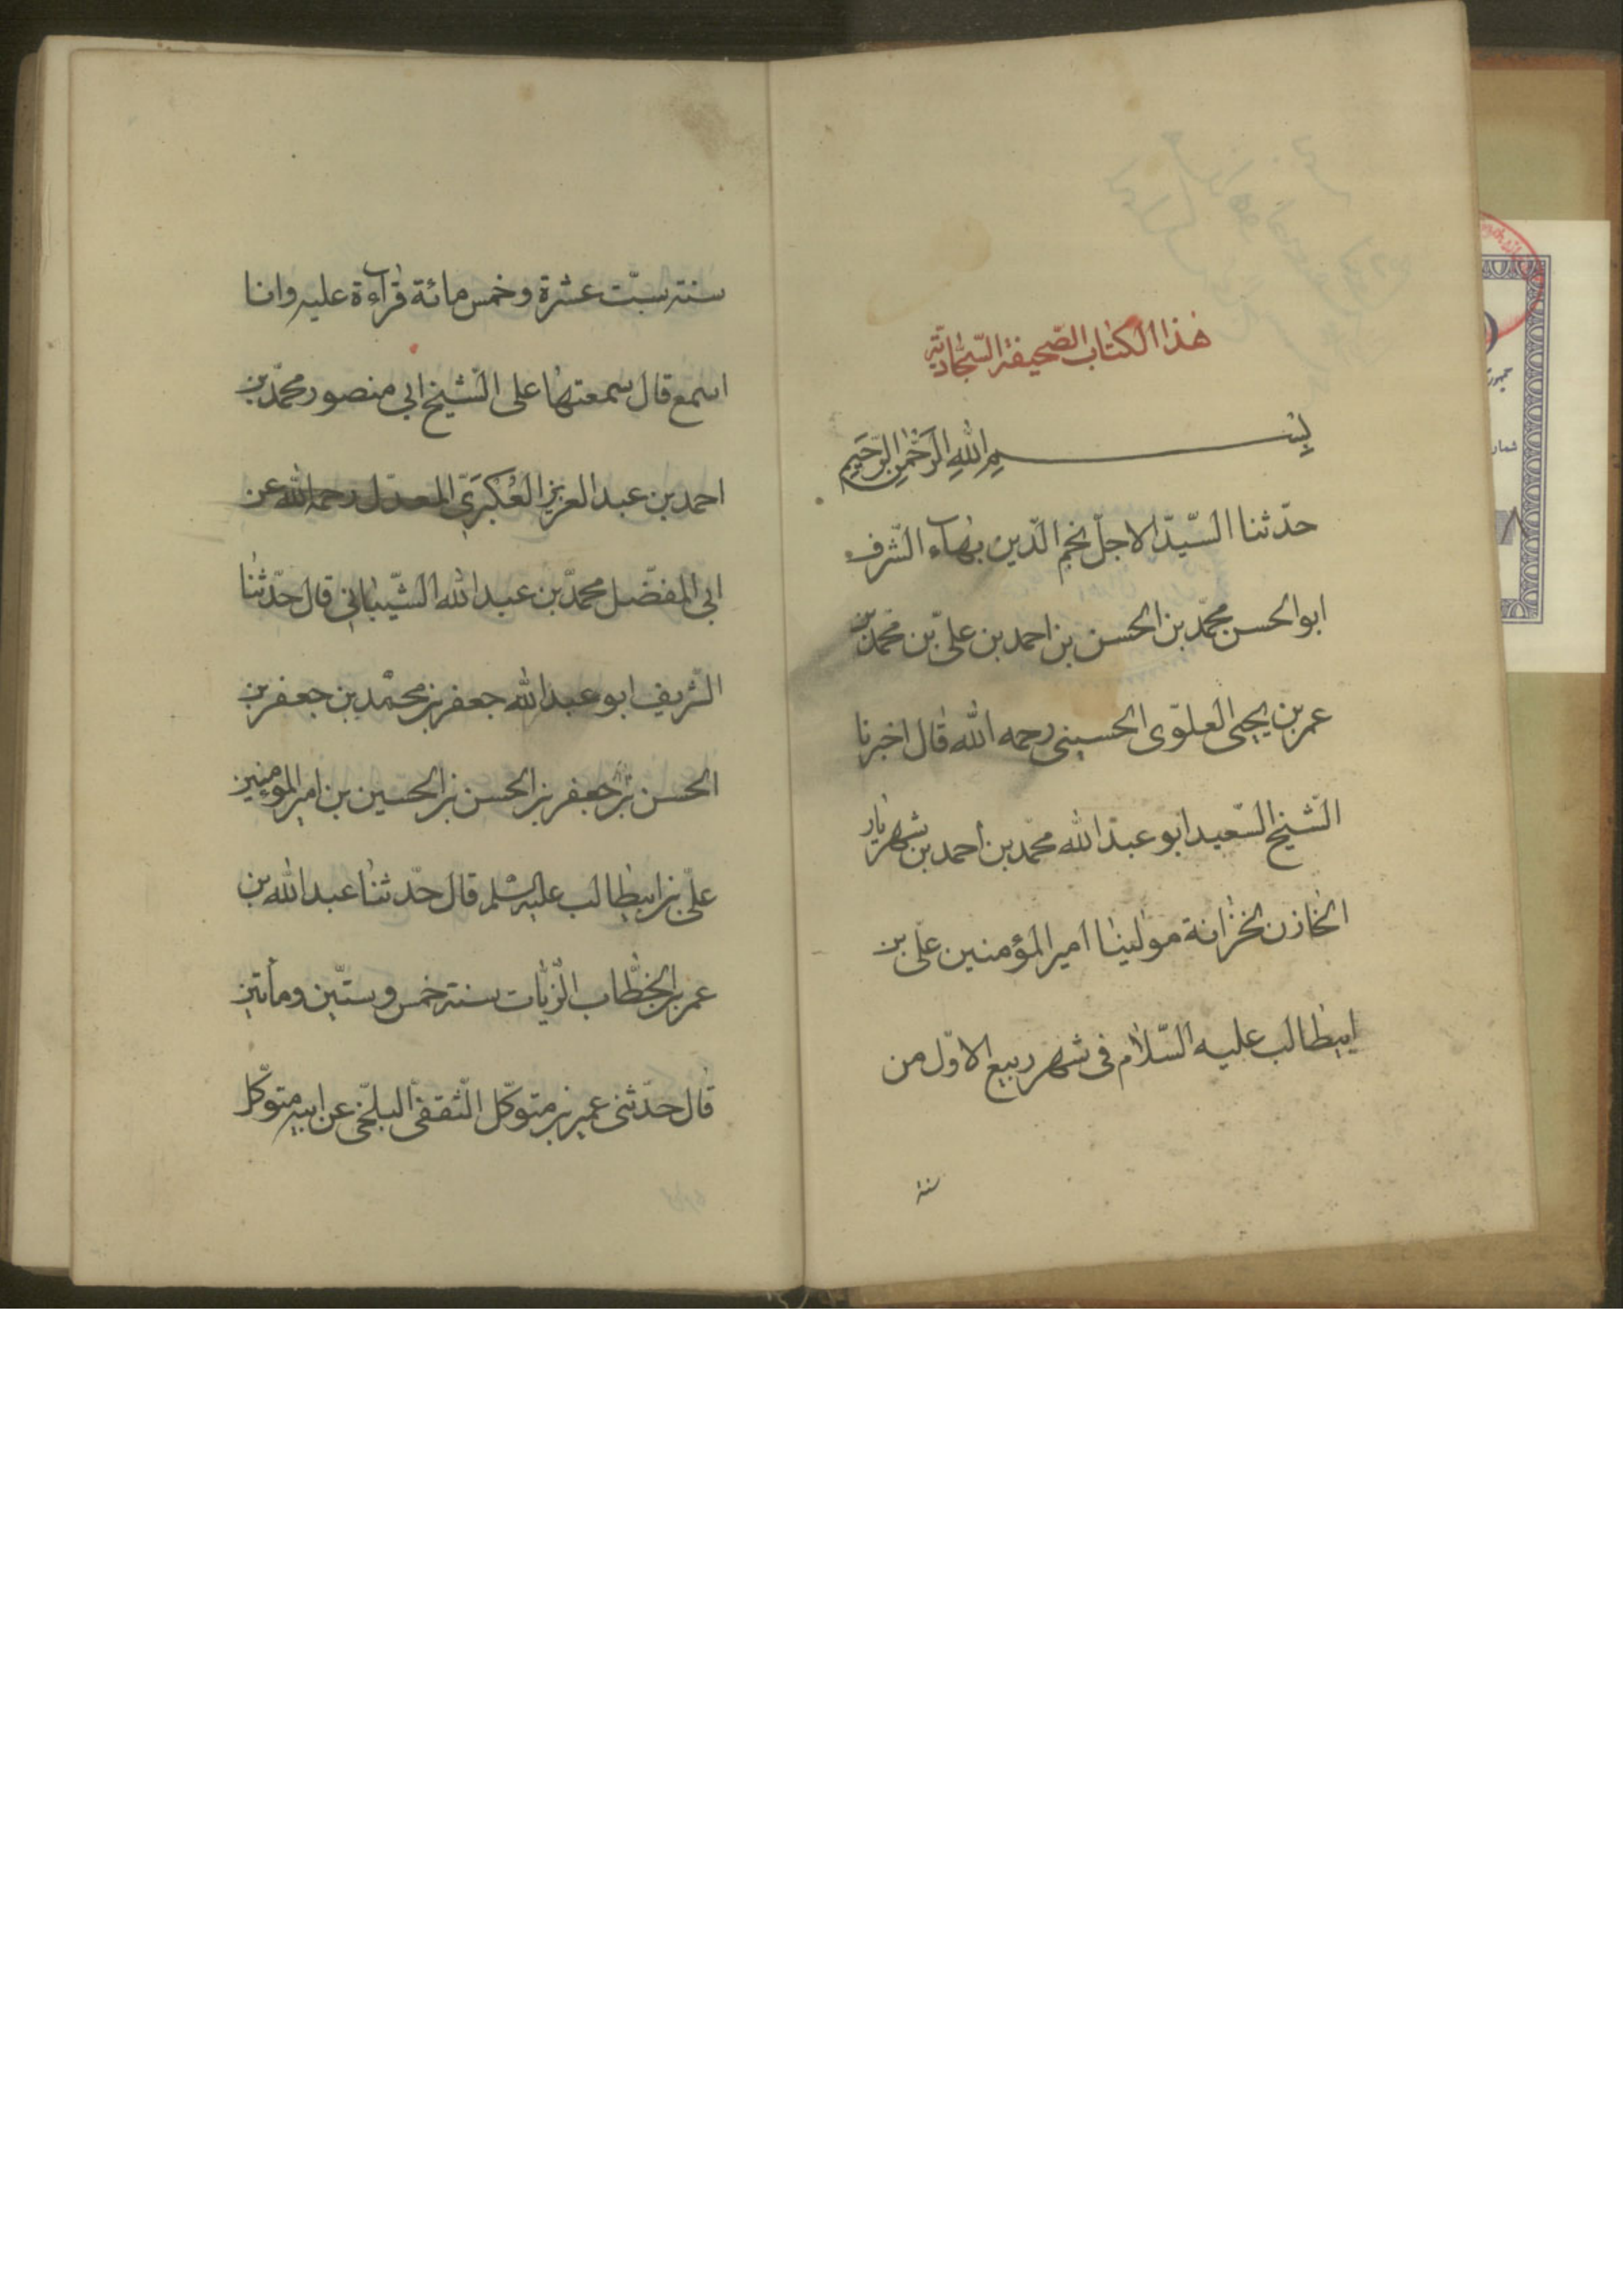 هذا الكتاب الصّحيفة السّجّاديّة
بِسْمِ اللهِ الرَّحْمٰنِ الرَّحِيمِ
حدّثنا السّيّد الاجلّ نجم الدّين بهاء الشّرف
ابو الحسن محمّد بن الحسن بن احمد بن علىّ بن محمّد بن
عمر بن يحيى العلوّى الحسينى رحمه الله قال اخبرنا
الشّيخ السّعيد ابو عبد الله محمّد بن احمد بن شهريار
الخازن لخزانة مولينا امير المؤمنين علىّ بن
ابيطالب عليه السّلام فى شهر ربيع الاوّل من
سنة
سنة ستّ عشرة و خمس مائة قراءة عليه وانا
اسمع قال سمعتها على الشّيخ ابى منصور محمّد بن
احمد بن عبد العزيز العُكْبَرَىّ المعدّل رحمه الله عن
ابى المفضّل محمّد بن عبد الله الشّيبانى قال حدّثنا
الشّريف ابو عبد الله جعفر بن محمّد بن جعفر بن
الحسن بن جعفر بن الحسن بن الحسين بن امير المؤمنين
علىّ بن ابيطالب عليه السّلم قال حدّثنا عبد الله بن
عمر بن الخطّاب الزّيّات سنة خمس و ستّين ومأتين
قال حدّثنى عمير بن متوكّل الثّقفىّ البلخّى عن ابيه متوكّل